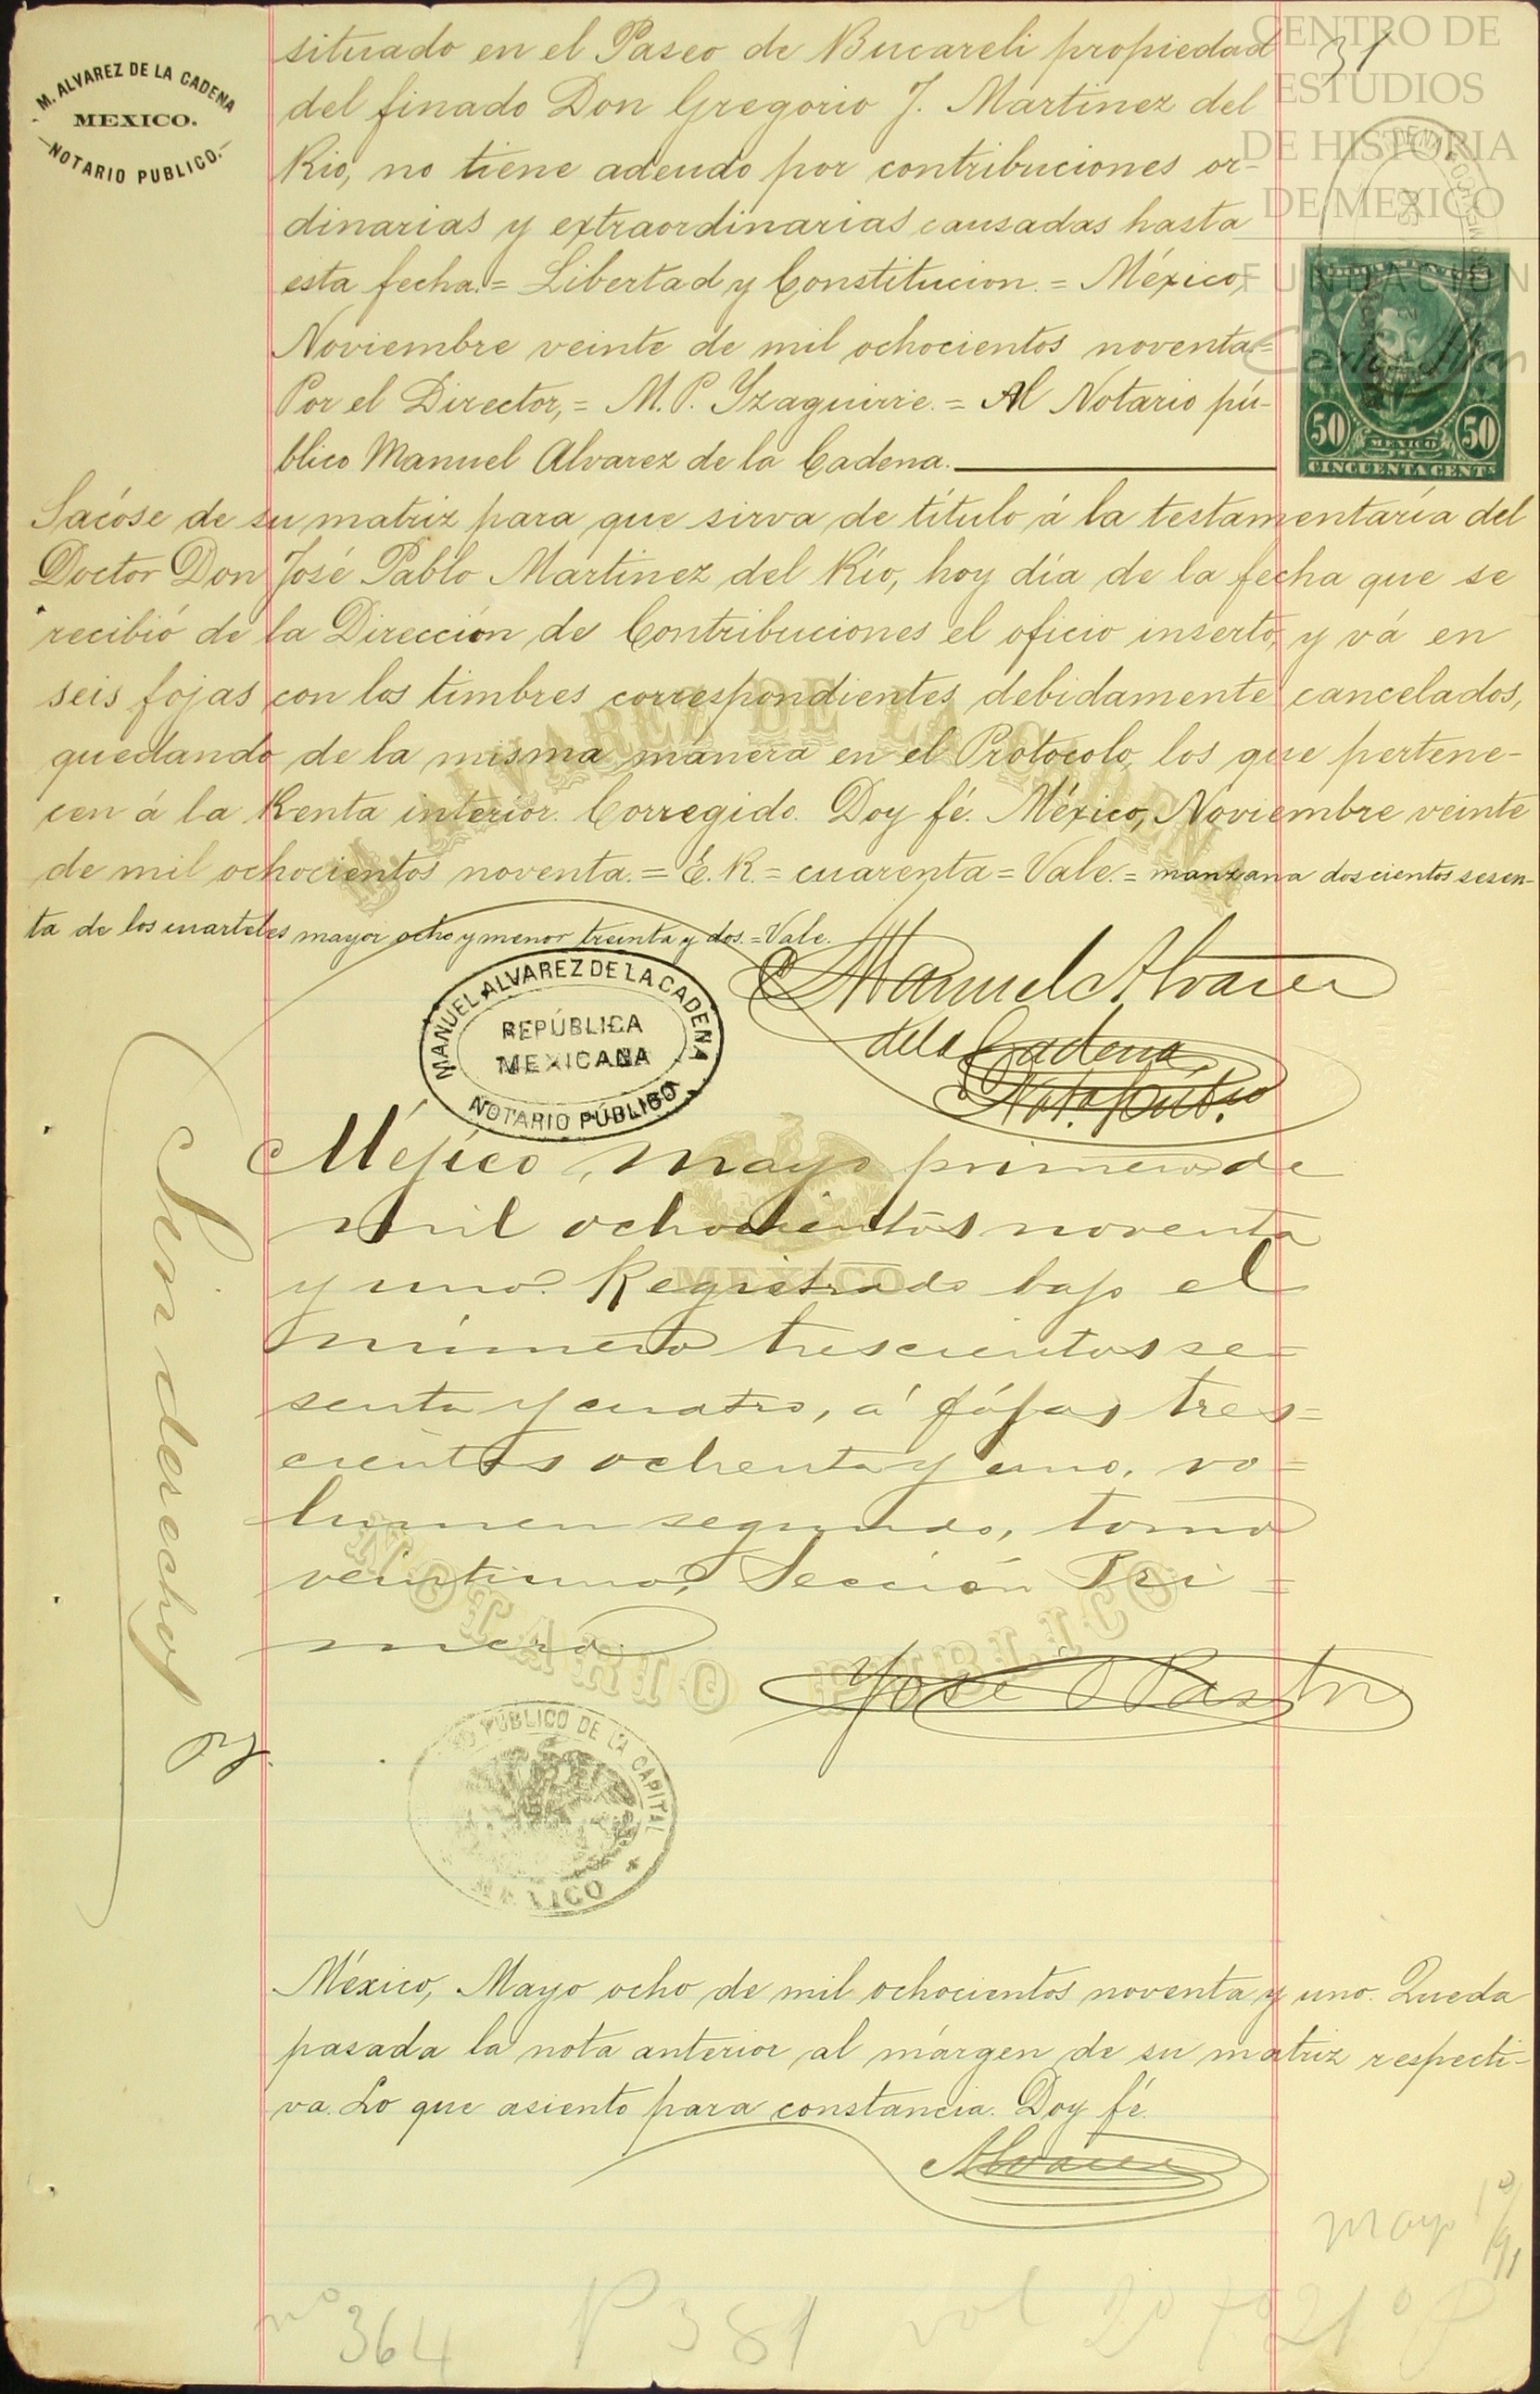 M. ALVAREZ DE LA CADENA
MEXICO.
NOTARIO PUBLICO.
CENTRO DE
ESTUDIOS
DE HISTORIA
DE MEXICO
FUNDACION
31
situado en el Paseo de Bucareli propiedad
del finado Don Gregorio J. Martinez del
Rio, no tiene adeudo por contribuciones or-
dinarias y extraordinarias causadas hasta
esta fecha.= Libertad y Constitucion.= México,
Noviembre veinte de mil ochocientos noventa.=
Por el Director,= M. P. Yzaguirre.= Al Notario pú-
blico Manuel Alvarez de la Cadena.
50 MEXICO 50
CINCUENTA CENTS
Sacóse de su matriz para que sirva de título á la testamentaría del
Doctor Don José Pablo Martinez del Río, hoy día de la fecha que se
recibió de la Dirección de Contribuciones el oficio inserto, y vá en
seis fojas con los timbres correspondientes debidamente cancelados,
quedando de la misma manera en el Protocolo, los que pertene-
cen á la Renta interior. Corregido. Doy fé. México, Noviembre veinte
de mil ochocientos noventa.= E. R.= cuarenta = Vale.= manzana doscientos sesen-
ta de los cuarteles mayor ocho y menor treinta y dos.= Vale.
M. ALVAREZ DE LA CADENA
MANUEL ALVAREZ DE LA CADENA
REPÚBLICA
MEXICANA
NOTARIO PÚBLICO
Manuel Alvarez
de la Cadena,
Not. púb.
Méjico, mayo primero de
mil ochocientos noventa
y uno. Registrado bajo el
número trescientos se=
senta y cuatro, á fójas tres=
cientos ochenta y uno, vo=
lumen segundo, tomo
veintiuno, Sección Pri=
mera.
MEXICO
NOTARIO PUBLICO
Sin derechos
José P Pastor
PUBLICO DE LA CAPITAL
MEXICO
México, Mayo ocho de mil ochocientos noventa y uno. Queda
pasada la nota anterior al márgen de su matriz respecti-
va. Lo que asiento para constancia. Doy fé.
Alvarez
mayo 1º/91
nº 364 P 381 vol 2º tº 21º P